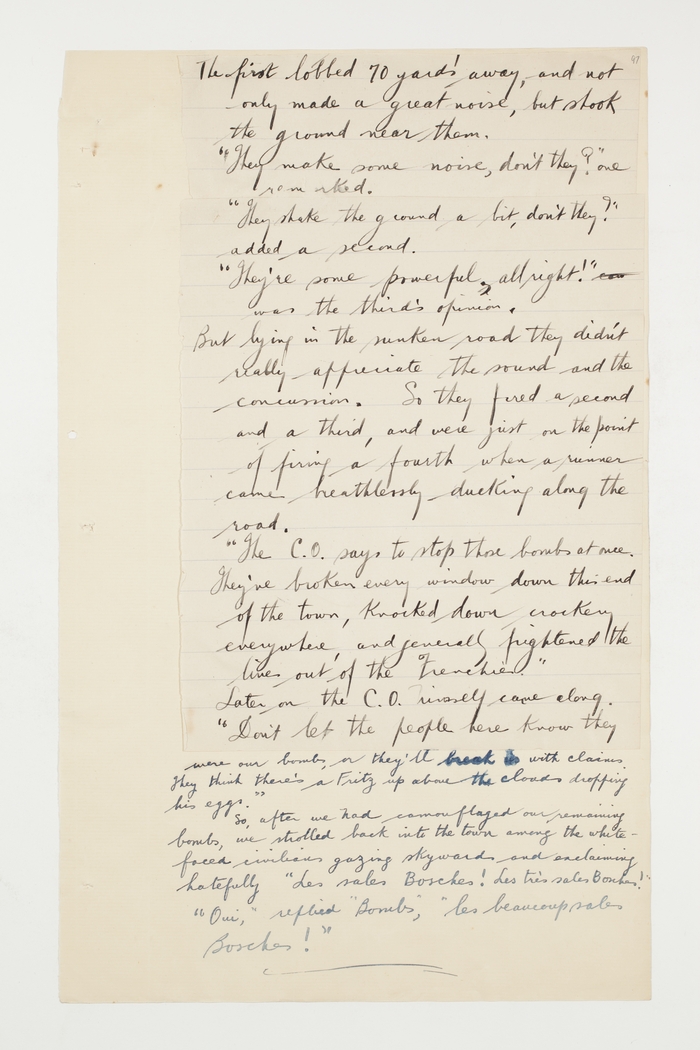 47
The first lobbed 70 yards away, and not
only made a great noise, but shook
the ground near them.
"They make some noise, don't they?" one
remarked.
"They shake the ground a bit, don't they?"
added a second.
"They're some powerful, allright!"
was the third's opinion.
But lying in the sunken road they didn't
really appreciate the sound and the
concussion. So they fired a second
and a third, and were just on the point
of firing a fourth when a runner
came breathlessly ducking along the
road.
"The C.O. says to stop those bombs at once.
They've broken every window down this end
of the town, knocked down crockery
everywhere, and generally frightened the
lives out of the Frenchies."
Later on the C.O. himself came along.
"Don't let the people here know they
were our bombs, or they'll break us with claims.
They think there's a Fritz up above the clouds dropping
his eggs."
So, after we had camouflaged our remaining
bombs, we strolled back into the town among the white-
faced civilians gazing skywards and exclaiming
hatefully "Les sales Bosches! Les très sales Bosches!"
"Oui," replied "Bombs", "les beaucoup sales
Bosches!"